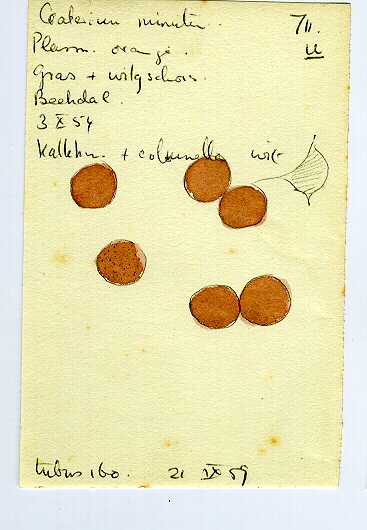 Craterium minutum. 711.
Plasm. oranje. U
Gras + wilgschors.
Beekdal.
3 X 54
Kalkkn. + columella wit
tubus 160. 21 IX 59